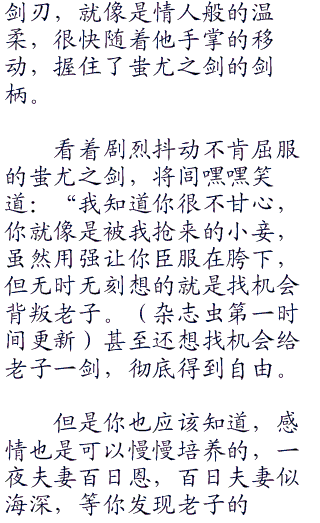 剑刃，就像是情人般的温
柔，很快随着他手掌的移
动，握住了蚩尤之剑的剑
柄。
看着剧烈抖动不肯屈服
的蚩尤之剑，将闾嘿嘿笑
道：“我知道你很不甘心，
你就像是被我抢来的小妾，
虽然用强让你臣服在胯下，
但无时无刻想的就是找机会
背叛老子。（杂志虫第一时
间更新）甚至还想找机会给
老子一剑，彻底得到自由。
但是你也应该知道，感
情也是可以慢慢培养的，一
夜夫妻百日恩，百日夫妻似
海深，等你发现老子的